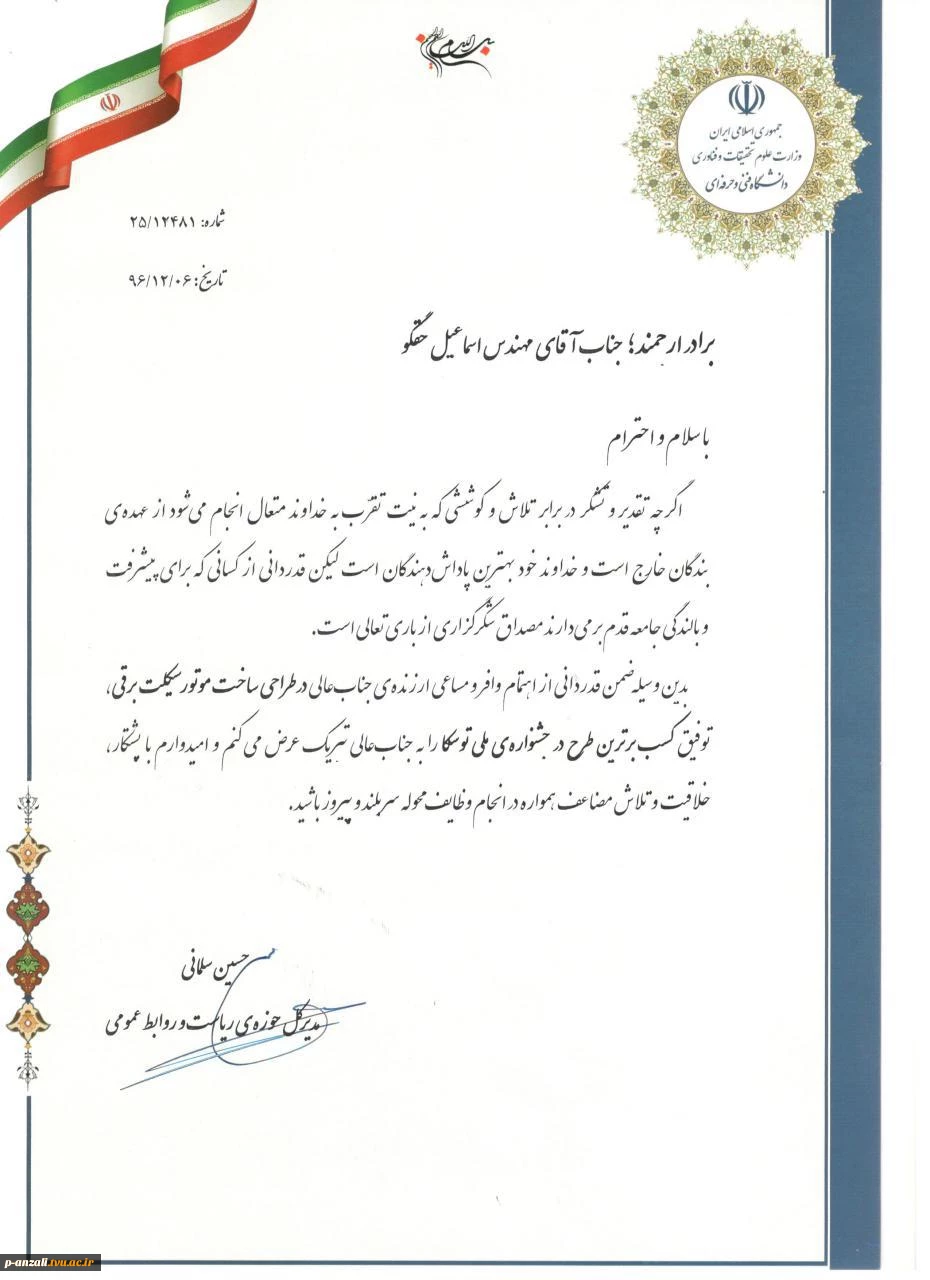 بسم الله الرحمن الرحیم
جمهوری اسلامی ایران
وزارت علوم تحقیقات و فناوری
دانشگاه فنی و حرفه‌ای
شماره: ۲۵/۱۲۴۸۱
تاریخ: ۹۶/۱۲/۰۶
برادر ارجمند؛ جناب آقای مهندس اسماعیل حقگو
با سلام و احترام
اگرچه تقدیر و تشکر در برابر تلاش و کوششی که به نیت تقرّب به خداوند متعال انجام می‌شود از عهده‌ی
بندگان خارج است و خداوند خود بهترین پاداش‌دهندگان است لیکن قدردانی از کسانی که برای پیشرفت
و بالندگی جامعه قدم برمی‌دارند مصداق شکرگزاری از باری تعالی است.
بدین وسیله ضمن قدردانی از اهتمام وافر و مساعی ارزنده‌ی جناب‌عالی در طراحی ساخت موتورسیکلت برقی،
توفیق کسب برترین طرح در جشنواره‌ی ملی توسکا را به جناب‌عالی تبریک عرض می‌کنم و امیدوارم با پشتکار،
خلاقیت و تلاش مضاعف همواره در انجام وظایف محوله سربلند و پیروز باشید.
حسین سلمانی
مدیرکل حوزه‌ی ریاست و روابط عمومی
p-anzali.tvu.ac.ir